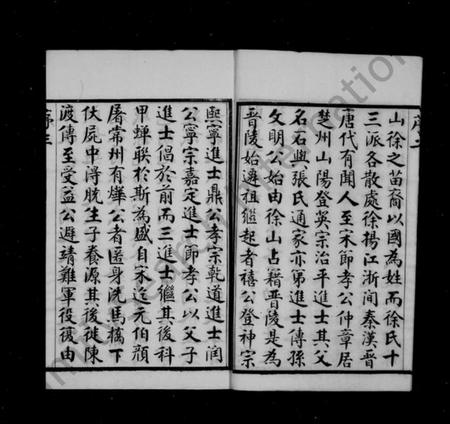 序二
山徐之苗裔以國為姓而徐氏十
三派各散處徐揚江浙間秦漢晉
唐代有聞人至宋節孝公仲章居
楚州山陽登英宗治平進士其父
名石與張氏通家亦第進士傳孫
文明公始由徐山占籍晉陵是為
晉陵始遷祖繼起者禧公登神宗
熙寧進士鼎公孝宗乾道進士閏
公寧宗嘉定進士節孝公以父子
進士倡於前而三進士繼其後科
甲蟬聯於斯為盛自宋迄元伯顏
屠常州有燁公者匿身洗馬橋下
伏屍中得脫生子養源其後徙陳
渡傳至受益公避靖難軍役復由
序三